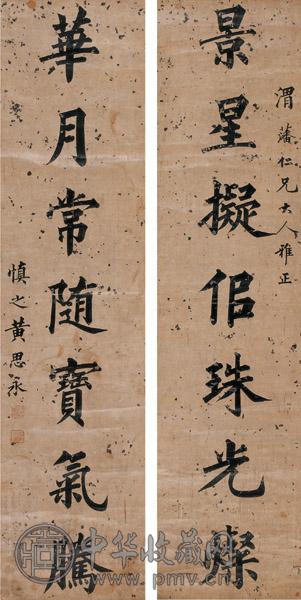 渭藩仁兄大人雅正
景星擬佀珠光燦
華月常随寶氣騰
慎之黃思永
中华收藏网
www.pmv.cn